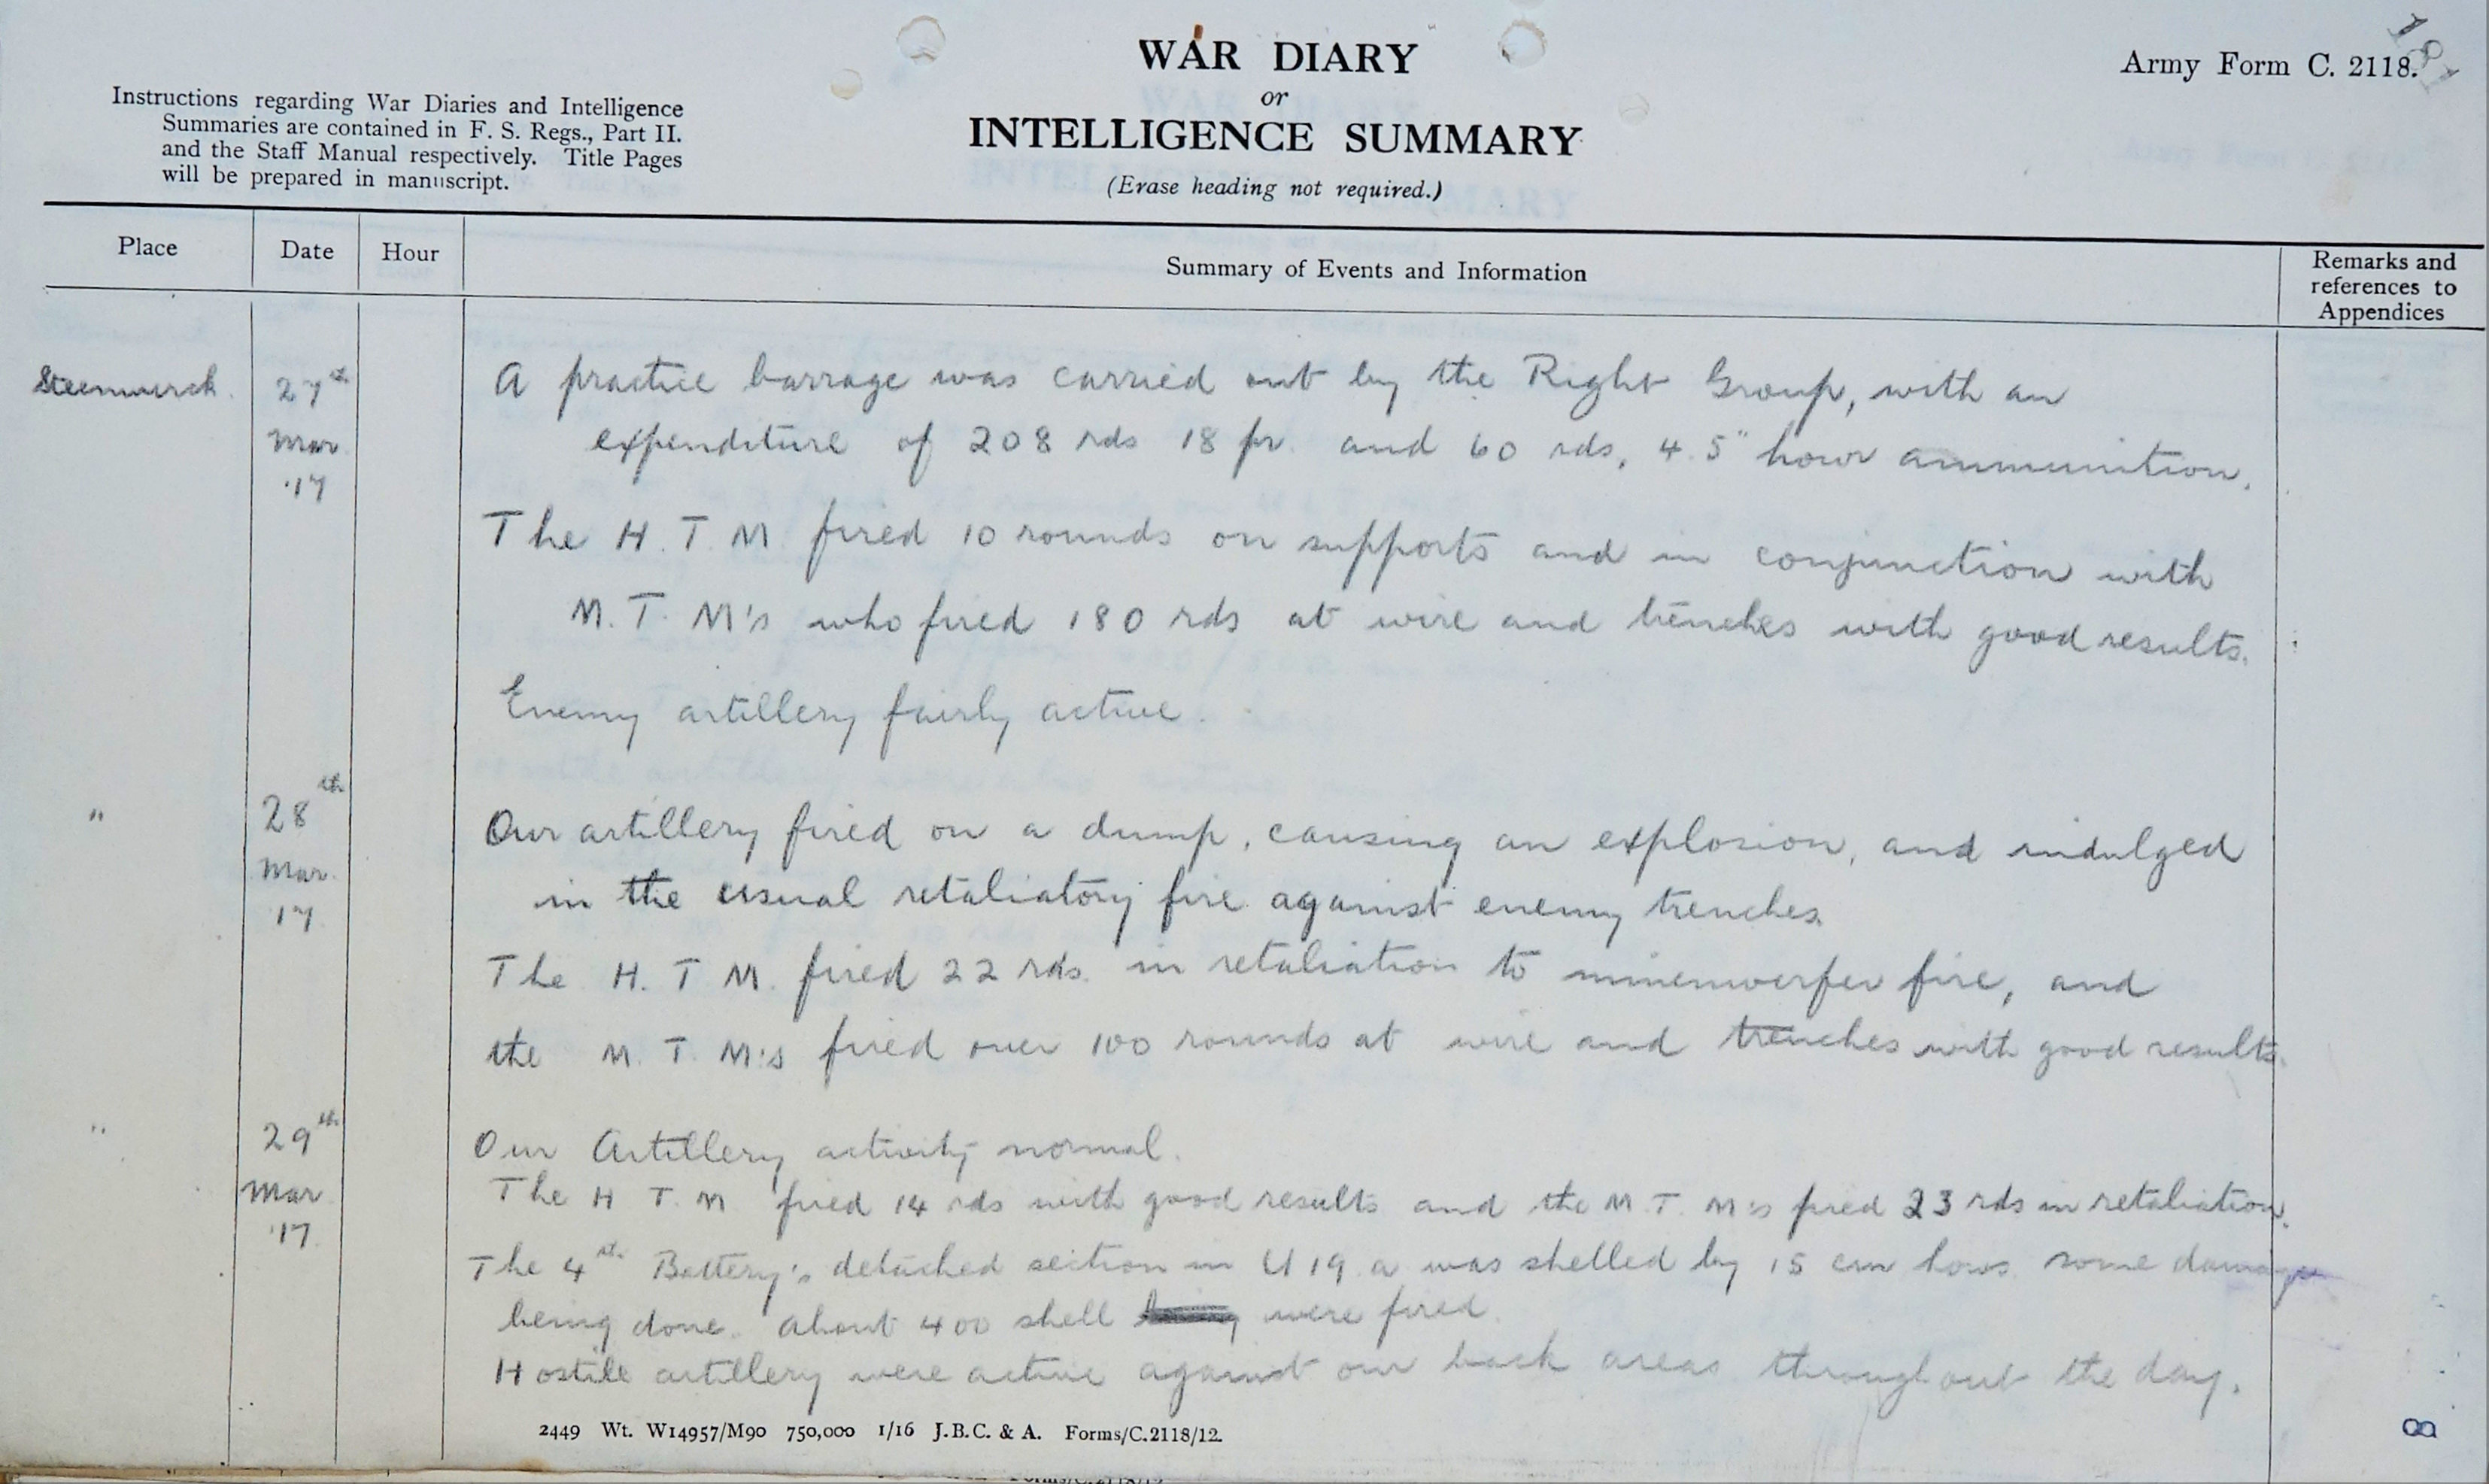 WAR DIARY
or
INTELLIGENCE SUMMARY
(Erase heading not required.)
Army Form C. 2118.
Instructions regarding War Diaries and Intelligence
Summaries are contained in F. S. Regs., Part II.
and the Staff Manual respectively. Title Pages
will be prepared in manuscript.
Place Date Hour Summary of Events and Information Remarks and
references to
Appendices
Steenwerck. 27th A practice barrage was carried out by the Right Group, with an
Mar expenditure of 208 rds 18 pr. and 60 rds, 4.5" howr ammunition.
'17
The H. T. M fired 10 rounds on supports and in conjunction with
M. T. M's who fired 180 rds at wire and trenches with good results.
Enemy artillery fairly active.
" 28th Our artillery fired on a dump, causing an explosion, and indulged
Mar. in the usual retaliatory fire against enemy trenches.
17
The H. T M. fired 22 rds. in retaliation to minenwerfer fire, and
the M. T. M's fired over 100 rounds at wire and trenches with good results.
" 29th Our Artillery activity normal.
Mar The H T. M fired 14 rds with good results and the M. T. M's fired 23 rds in retaliation.
'17.
The 4th Battery's detached section in U 19 a was shelled by 15 cm hows some damage
being done. about 400 shell were fired.
Hostile artillery were active against our back areas throughout the day.
2449 Wt. W14957/M90 750,000 1/16 J.B.C. & A. Forms/C.2118/12.
8